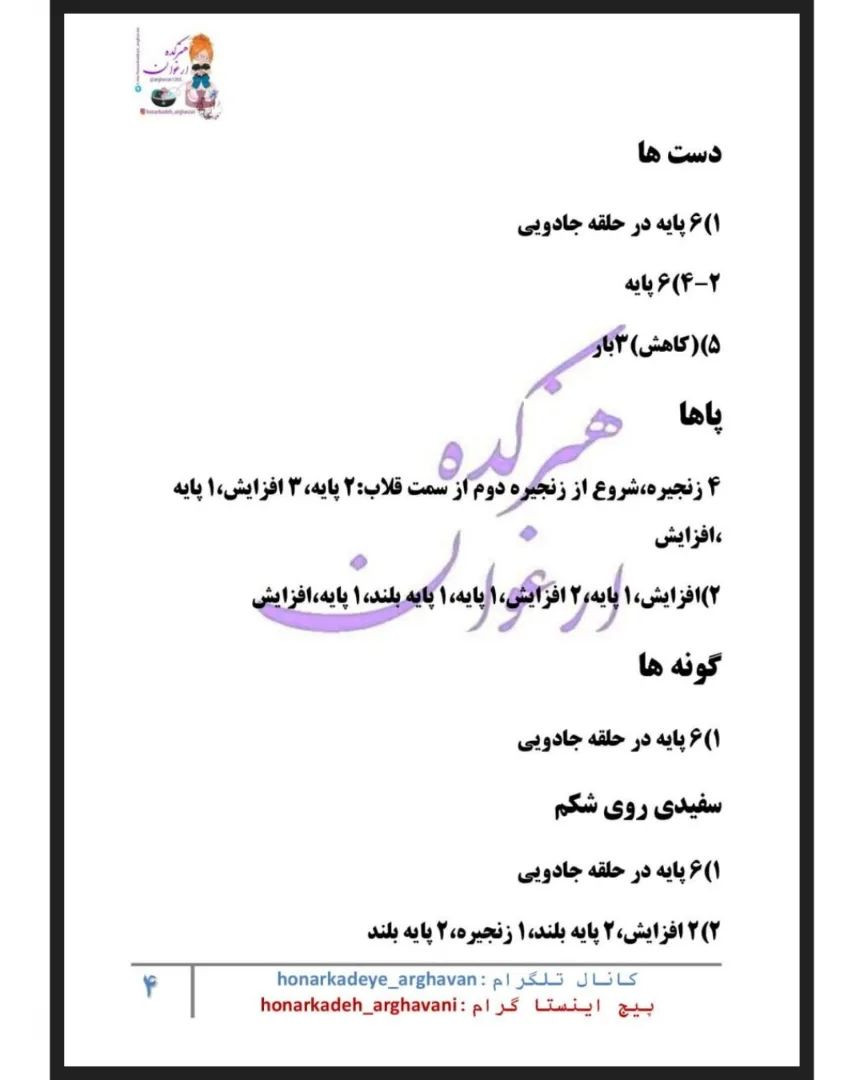 هنرکده
ارغوان
@arghavan1355
honarkadeh_arghavani
دست ها
۱)۶ پایه در حلقه جادویی
۲-۴)۶ پایه
۵)(کاهش)۳بار
پاها
۴ زنجیره،شروع از زنجیره دوم از سمت قلاب:۲ پایه،۳ افزایش،۱ پایه
،افزایش
۲)افزایش،۱ پایه،۲ افزایش،۱ پایه،۱ پایه بلند،۱ پایه،افزایش
هنرکده
ارغوان
گونه ها
۱)۶ پایه در حلقه جادویی
سفیدی روی شکم
۱)۶ پایه در حلقه جادویی
۲)۲ افزایش،۲ پایه بلند،۱ زنجیره،۲ پایه بلند
کانال تلگرام :honarkadeye_arghavan
پیج اینستا گرام :honarkadeh_arghavani
۴